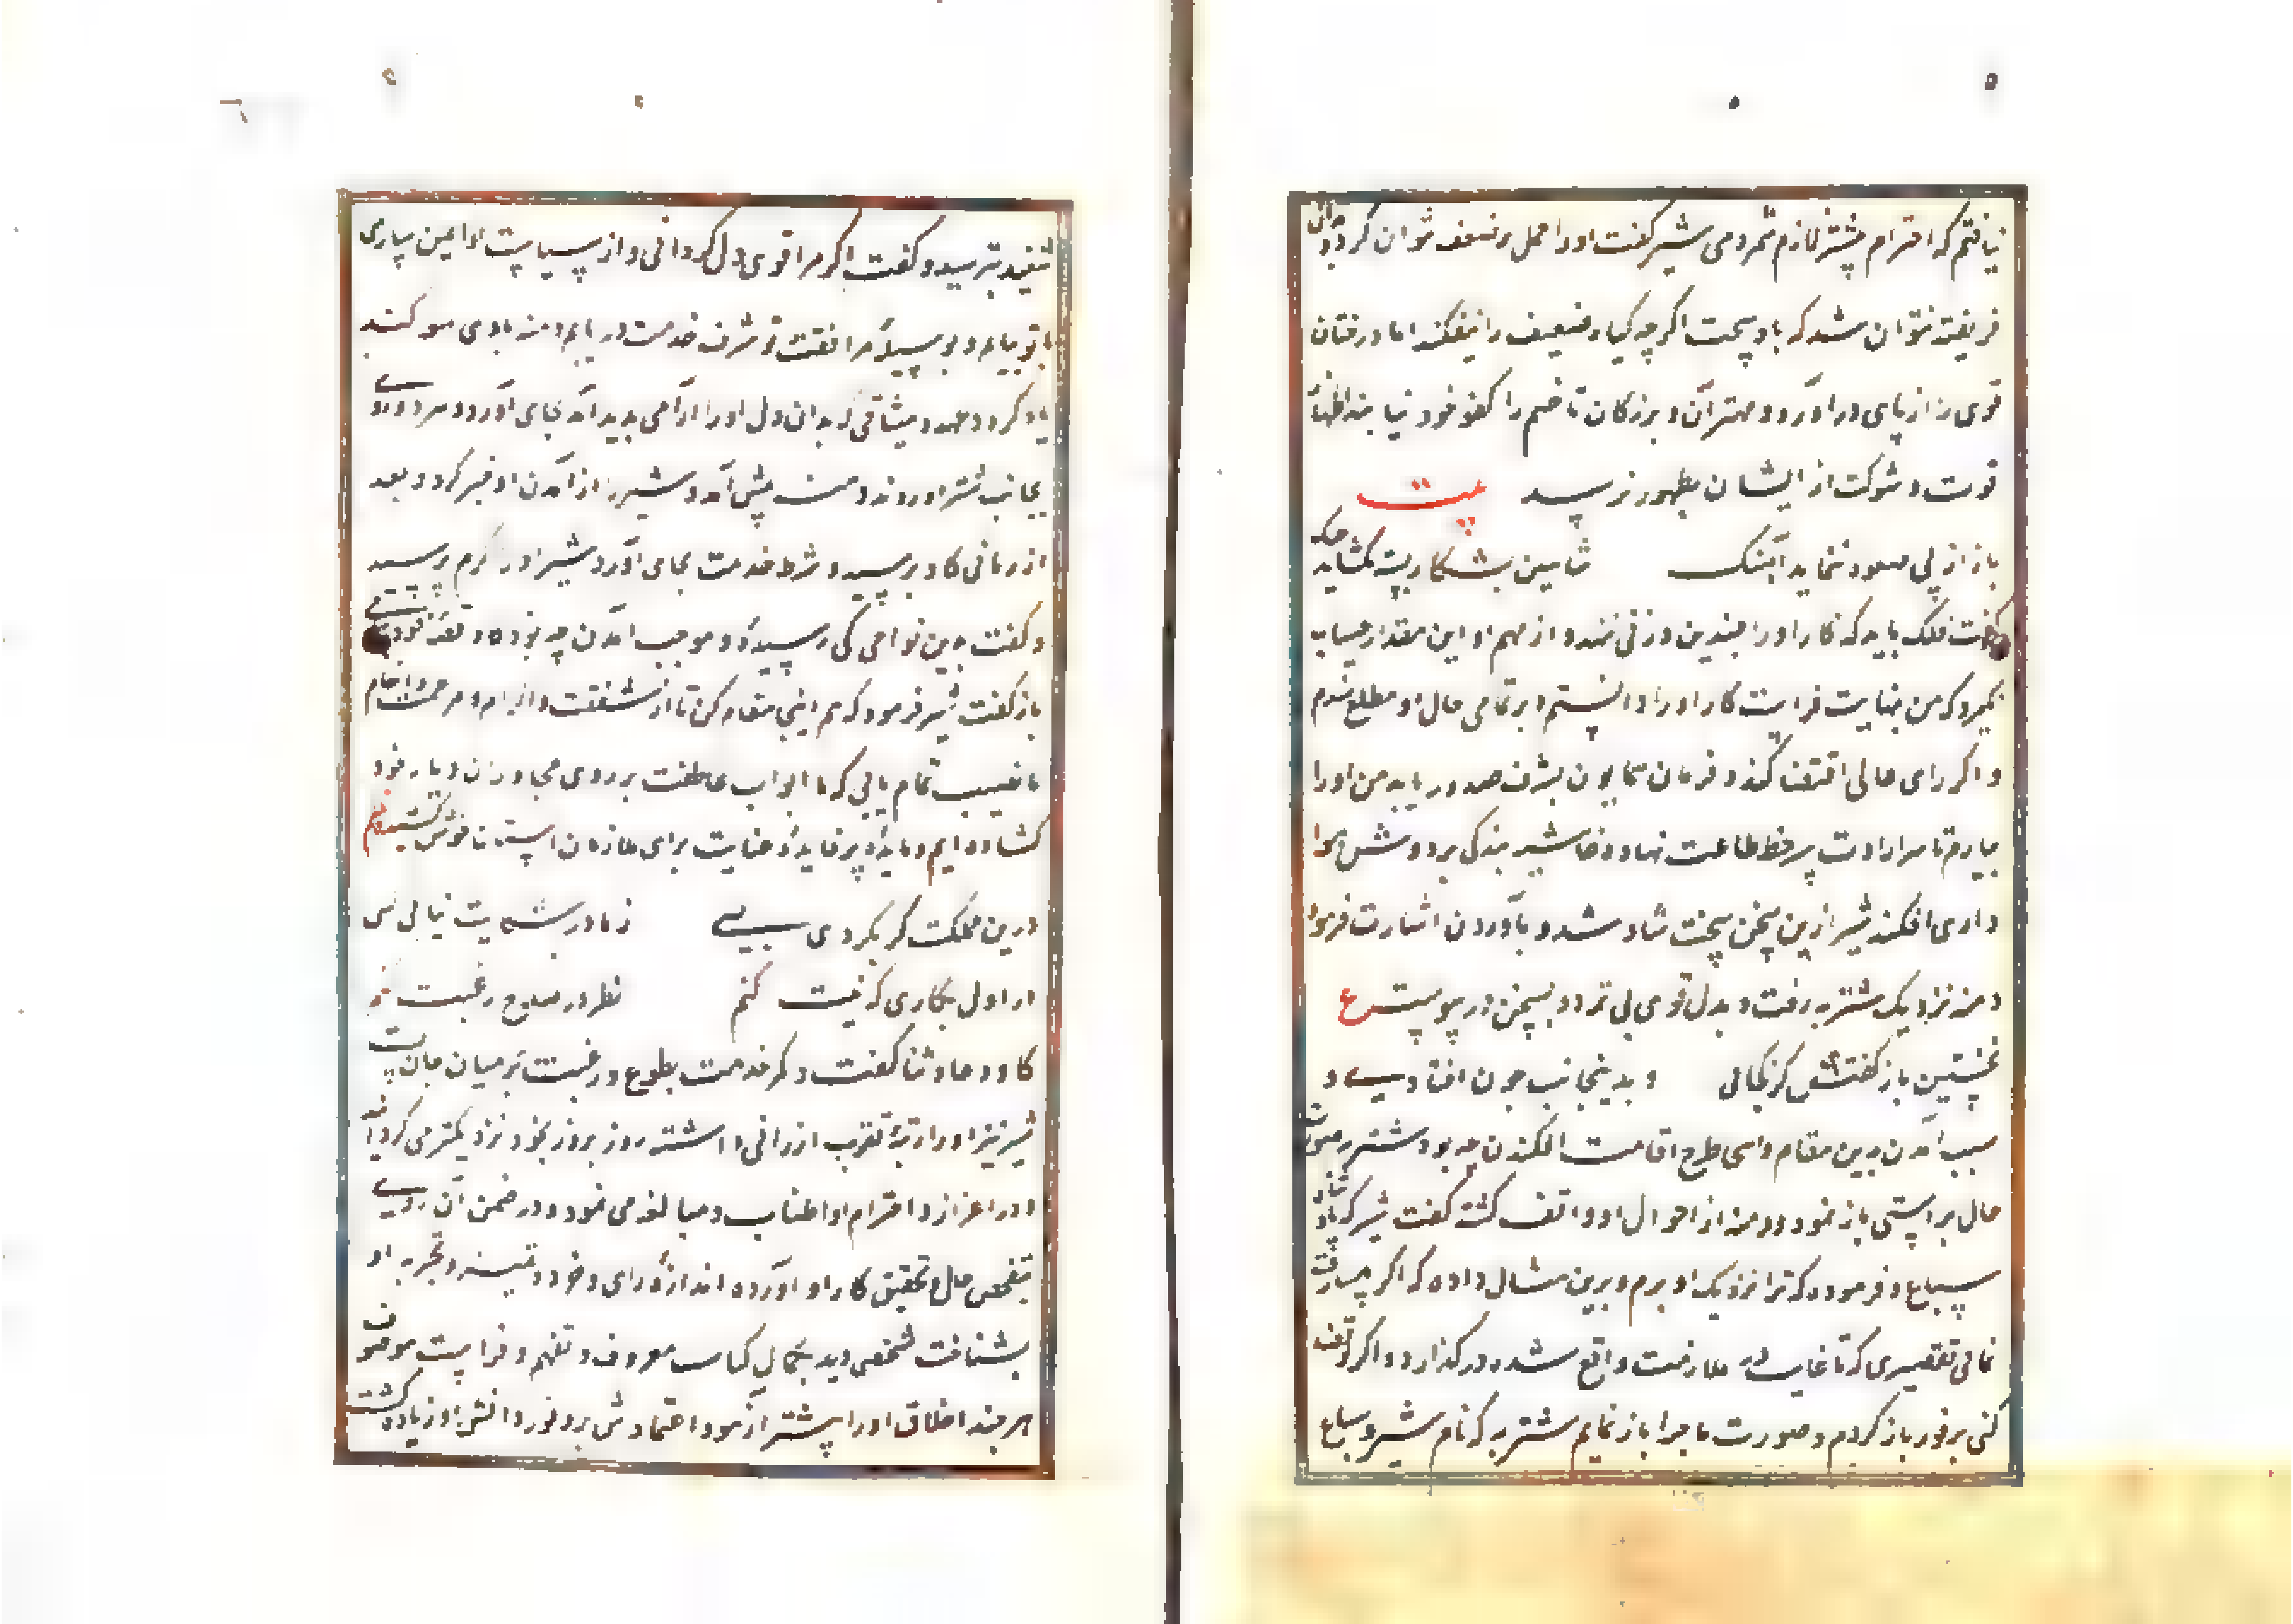 ۵
نیافتم که احترام بیشتر لازم شمردمی شیر گفت اورا حمل بر ضعف نتوان کرد و بدان
فریفته نتوان شد که باد سخت اگرچه گیاه ضعیف را نیفکند اما درختان
قوی را از پای در آورد و مهتران و بزرگان تا خصم را کفو خود نیابند اظهار
قوت و شوکت از ایشان بظهور نرسد بیت
باز از پی صعوه ننماید آهنگ شاهین بشکار پشه نگشاید چنگ
دمنه گفت ملک باید که کار او را چندین وزنی ننهد و از مهم او این مقدار حساب
نگیرد که من بنهایت فراست کار او را دانستم و بر تمامی حال او مطلع شدم
و اگر رای عالی اقتضا کند و فرمان همایون بشرف صدور یابد من او را
بیارم تا سر ارادت بر خط طاعت نهاده غاشیه بندگی بر دوش هوا
داری افکند شیر ازین سخن سخت شاد شد و بآوردن اشارت فرمود
دمنه نزدیک شتربه رفت و بدل قوی بی تردد بسخن در پیوست ع
نخستین باز گفتش کز کجائی و بدینجانب چون افتادی و
سبب آمدن بدین مقام و اسی طرح اقامت افکندن چه بود شتربه صورت
حال براستی باز نمود دمنه از احوال او واقف گشته گفت شیر که پادشاه
سباع و فرموده که ترا نزدیک او برم و برین مثال داده که اگر مسارعت
نمائی تقصیری که تا غایت در ملازمت واقع شده درگذارد و اگر توقف
کنی بر فور باز گردم و صورت ماجرا باز نمایم شتربه که نام شیر و سباع
شنید بترسید و گفت اگر مرا قوی دل گردانی و از سیاست او ایمن سازی
با تو بیایم و بوسیله مرافقت تو شرف خدمت دریابم دمنه با وی سوگند
یاد کرد و عهد و میثاقی که بدان دل او را آرامی پدید آمد بجای آورد و هر دو روی
بجانب شیر آوردند دمنه پیش آمد و شیر را از آمدن او خبر کرد و بعد
از زمانی گاو برسید و شرط خدمت بجای آورد شیر او را گرم پرسید
و گفت بدین نواحی کی رسیده و موجب آمدن چه بوده گاو قصه خود بتمامی
باز گفت شیر فرمود که هم اینجا مقام کن تا از شفقت و اکرام و مرحمت و انعام
ما نصیب تمام یابی که ما ابواب عاطفت بر روی مجاوران دیار خود
گشاده ایم و مائده پر فایده عنایت برای ملازمان آستان خویش کشیده نظم
درین مملکت گر بگردی بسی ز ما در شکایت نیابی کسی
از اول بکاری که نیت کنم نظر در صلاح رعیت کنم
گاو دعا و ثنا گفت و کمر خدمت بطوع و رغبت بر میان جان بست
شیر نیز او را رتبه تقرب ارزانی داشته روز بروز بخود نزدیکتر می گردانید
و در اعزاز و احترام او اطناب و مبالغه می نمود و در ضمن آن روی
بتفحص حال و تحقیق کار او آورده اندازه رای و خرد و تمییز و تجربه او
بشناخت شخصی دید بکمال کیاست معروف و بفهم و فراست موصوف
هر چند اخلاق او را بیشتر آزمود اعتمادش بر وفور دانش او زیاده گشت